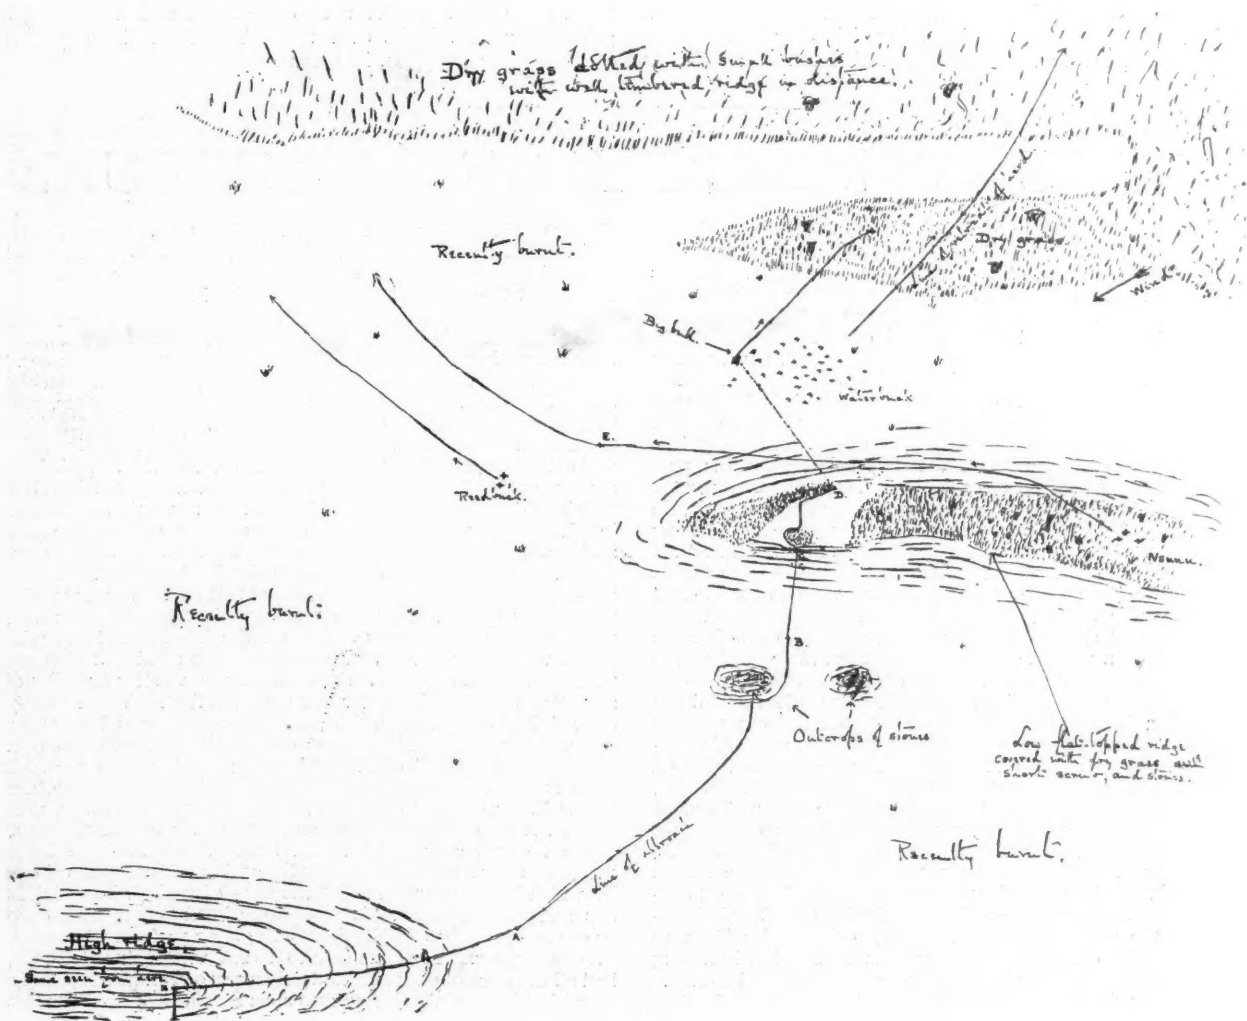 Dry grass dotted with small bushes
with well timbered ridge in distance.
Recently burnt.
Line of herd
Dry grass
Wind
Big bull.
Waterbuck
E.
Reedbuck.
D.
C
Nsunu.
Recently burnt.
B.
Outcrops of stones
Low flat-topped ridge
covered with dry grass with
short scrub, and stones.
Line of approach
Recently burnt.
A.
A
High ridge.
Game seen from here